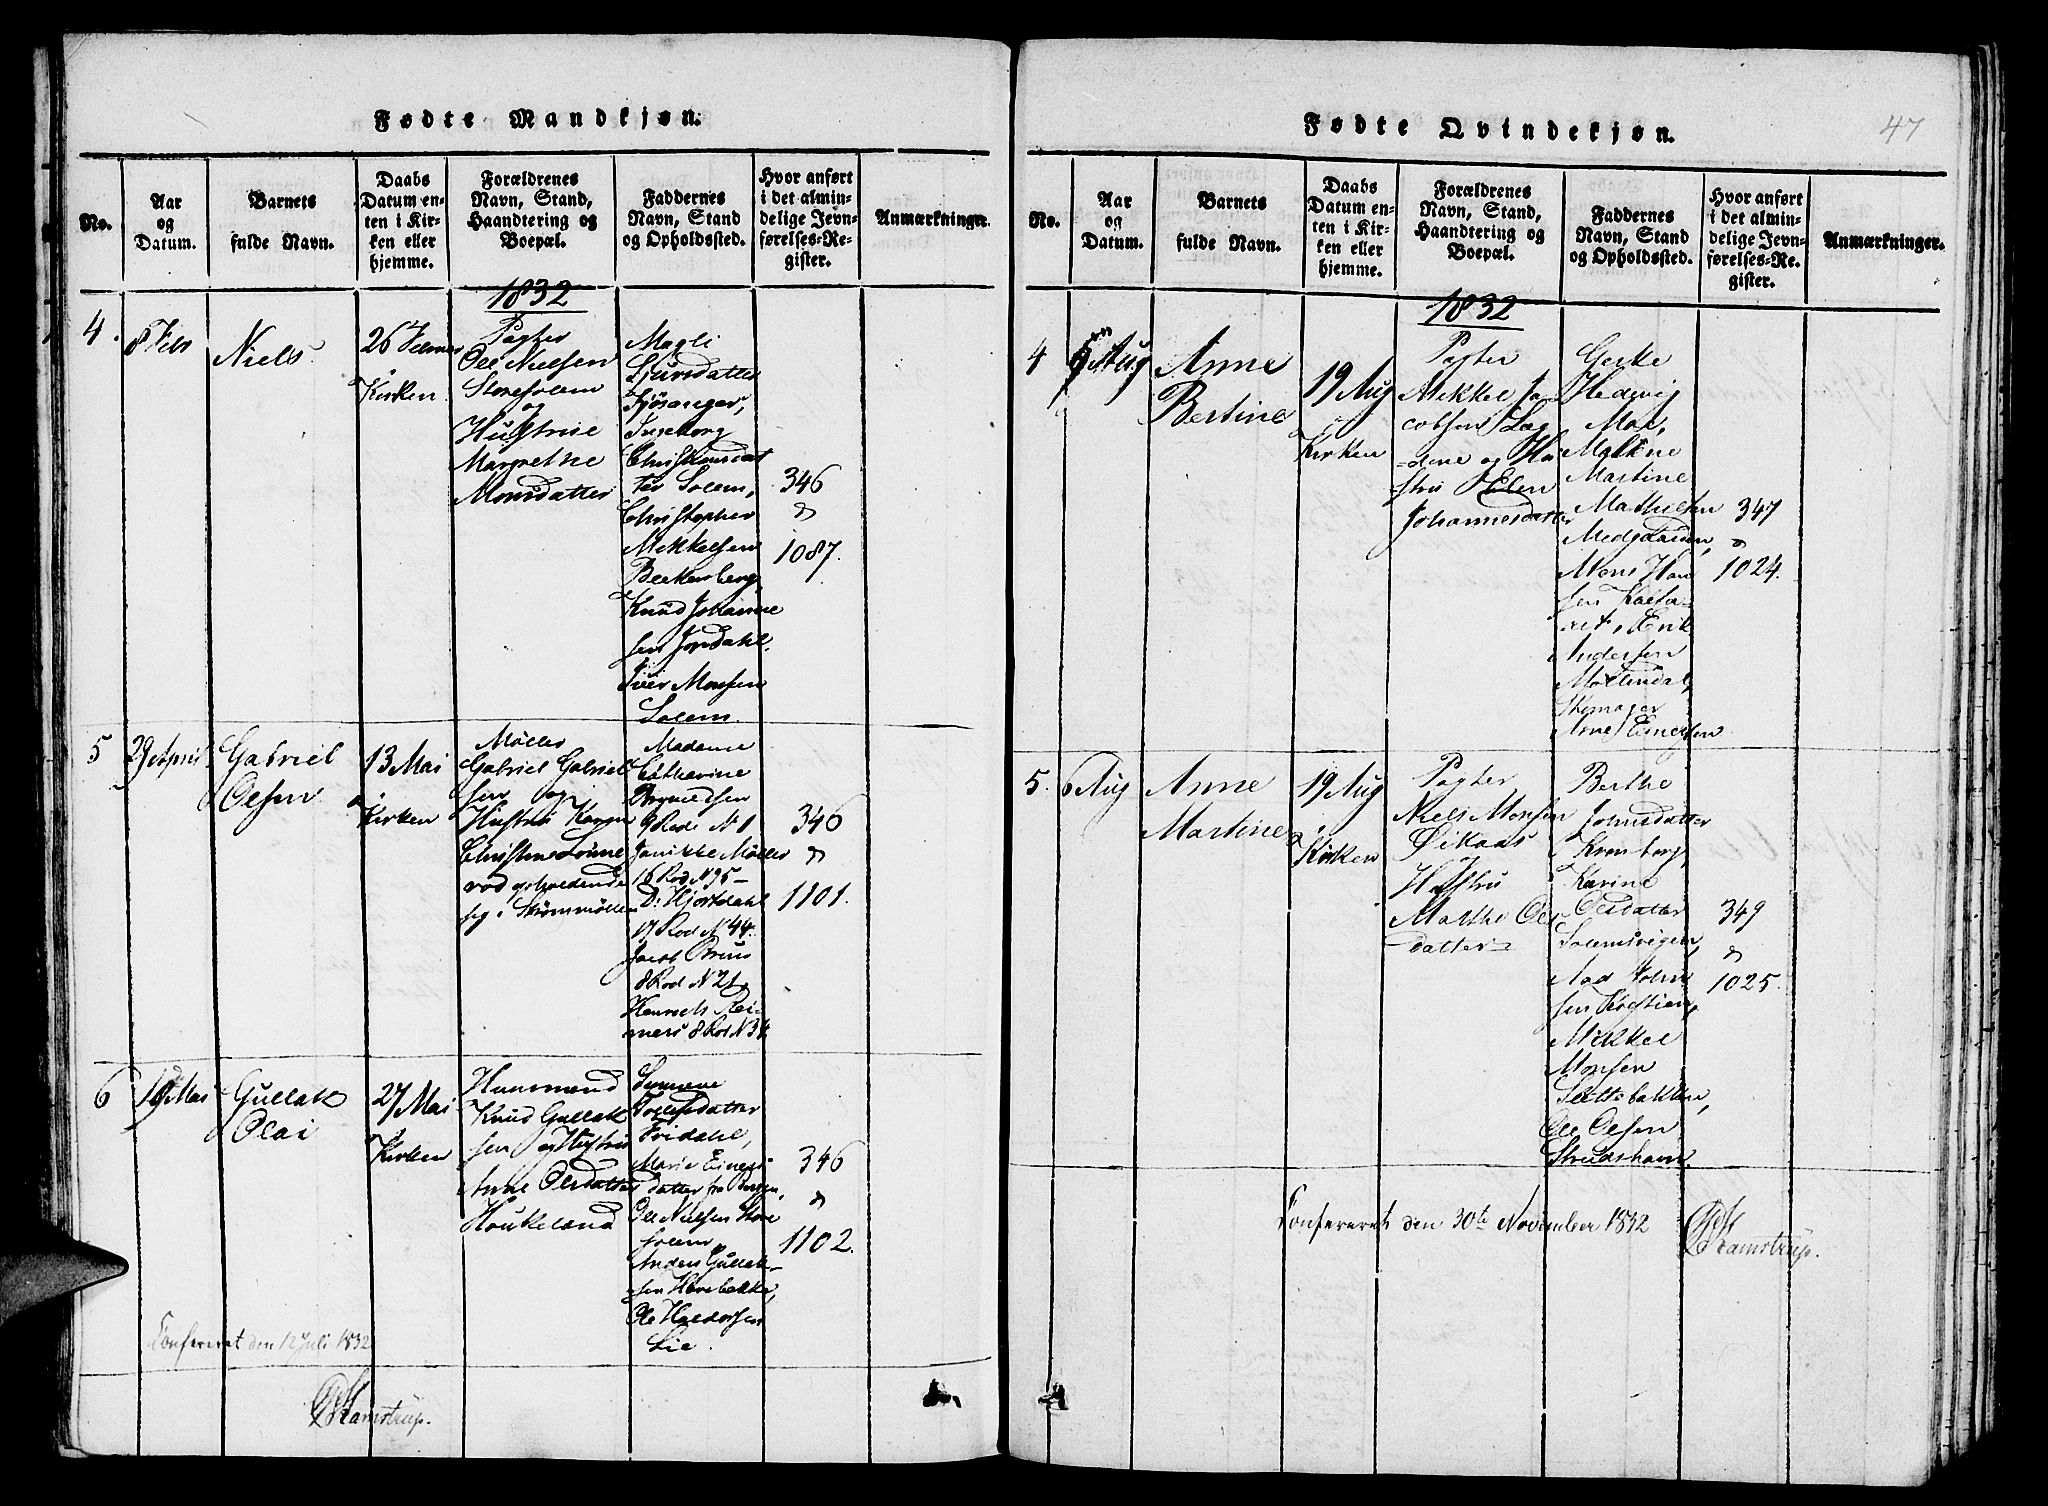 Fødte Mandkjøn.
No.
Aar
og
Datum.
Barnets
fulde Navn.
Daabs
Datum en-
ten i Kir-
ken eller
hjemme.
Forældrenes
Navn, Stand,
Haandtering og
Boepæl.
Faddernes
Navn, Stand
og Opholdssted.
Hvor anført
i det almin-
delige Jevn-
førelses-Re-
gister.
Anmærkninger.
1832
4.
8 Feb
Niels
26 Februar
i
Kirken
Pagter
Ole Nielsen
Storesolem
og
Hustrue
Margrethe
Monsdatter
Magli
Sjursdatter
Fjøsanger,
Ingeborg
Christensdat
ter Solem,
Christopher
Mikkelsen
Beekersberg,
Knud Johanne
sen Jordahl.
Iver Monsen
Solem.
346
&
1087.
5
29 April
Gabriel
Olsen
13 Mai
i
Kirken
Møller
Gabriel Gabriel
sen og
Hustrue Karen
Christine Tønne
rod opholdende
sig i Strømmøllen
Madame
Catharine
9 Rode N 1
Janikke Møller
16 Rod N 95-
D: Hjortdahl
17 Rod N 44.
Jacob Bruus
8 Rod N 21.
Henrich Rei-
mers 8 Rod N 34
346
&
1101.
6
19 Mai
Gullak
Olai
27 Mai
i
Kirken
Huusmand
Knud Gullak
sen og Hustru
Anne Olesdatter
Houkeland
Synneve
Tollefsdatter
Fridahl,
Marie Einers
datter fra Bergen,
Ole Nielsen Store
solem,
Anders Gullak-
sen Hovebakke,
Ole Haldorsen
Lie.
346
&
1102.
Confereret den 12 Juli 1832
Kamstrup.
Fødte Qvindekjøn.
47
No.
Aar
og
Datum.
Barnets
fulde Navn.
Daabs
Datum en-
ten i Kir-
ken eller
hjemme.
Forældrenes
Navn, Stand,
Haandtering og
Boepæl.
Faddernes
Navn, Stand
og Opholdssted.
Hvor anført
i det almin-
delige Jevn-
førelses-Re-
gister.
Anmærkninger.
1832
4
Aug
Anne
Bertine
19 Aug
i
Kirken
Pagter
Mikkel Ja
cobsen Læg
dene og Hu
stru Elen
Johannesdatter
Geske
Hedevig
Moe,
Malene
Martine
Mathiesen
Mons Han
sen Kalfa-
ret, Erik
Andersen
Møllendal,
Skomager
Arne Einersen
347
&
1024.
5.
6 Aug
Anne
Martine
19 Aug
i
Kirken
Pagter
Niels Monsen
og
Hustru
Marthe Ole
datter
Berthe
Johnsdatter
Kronborg,
Karine
Olesdatter
Solemsvigen,
Aad John
sen
Mikkel
Monsen
Slettebakken,
Ole Olsen
Strudshavn.
349
&
1025.
Confereret den 30te November 1832
Kamstrup.